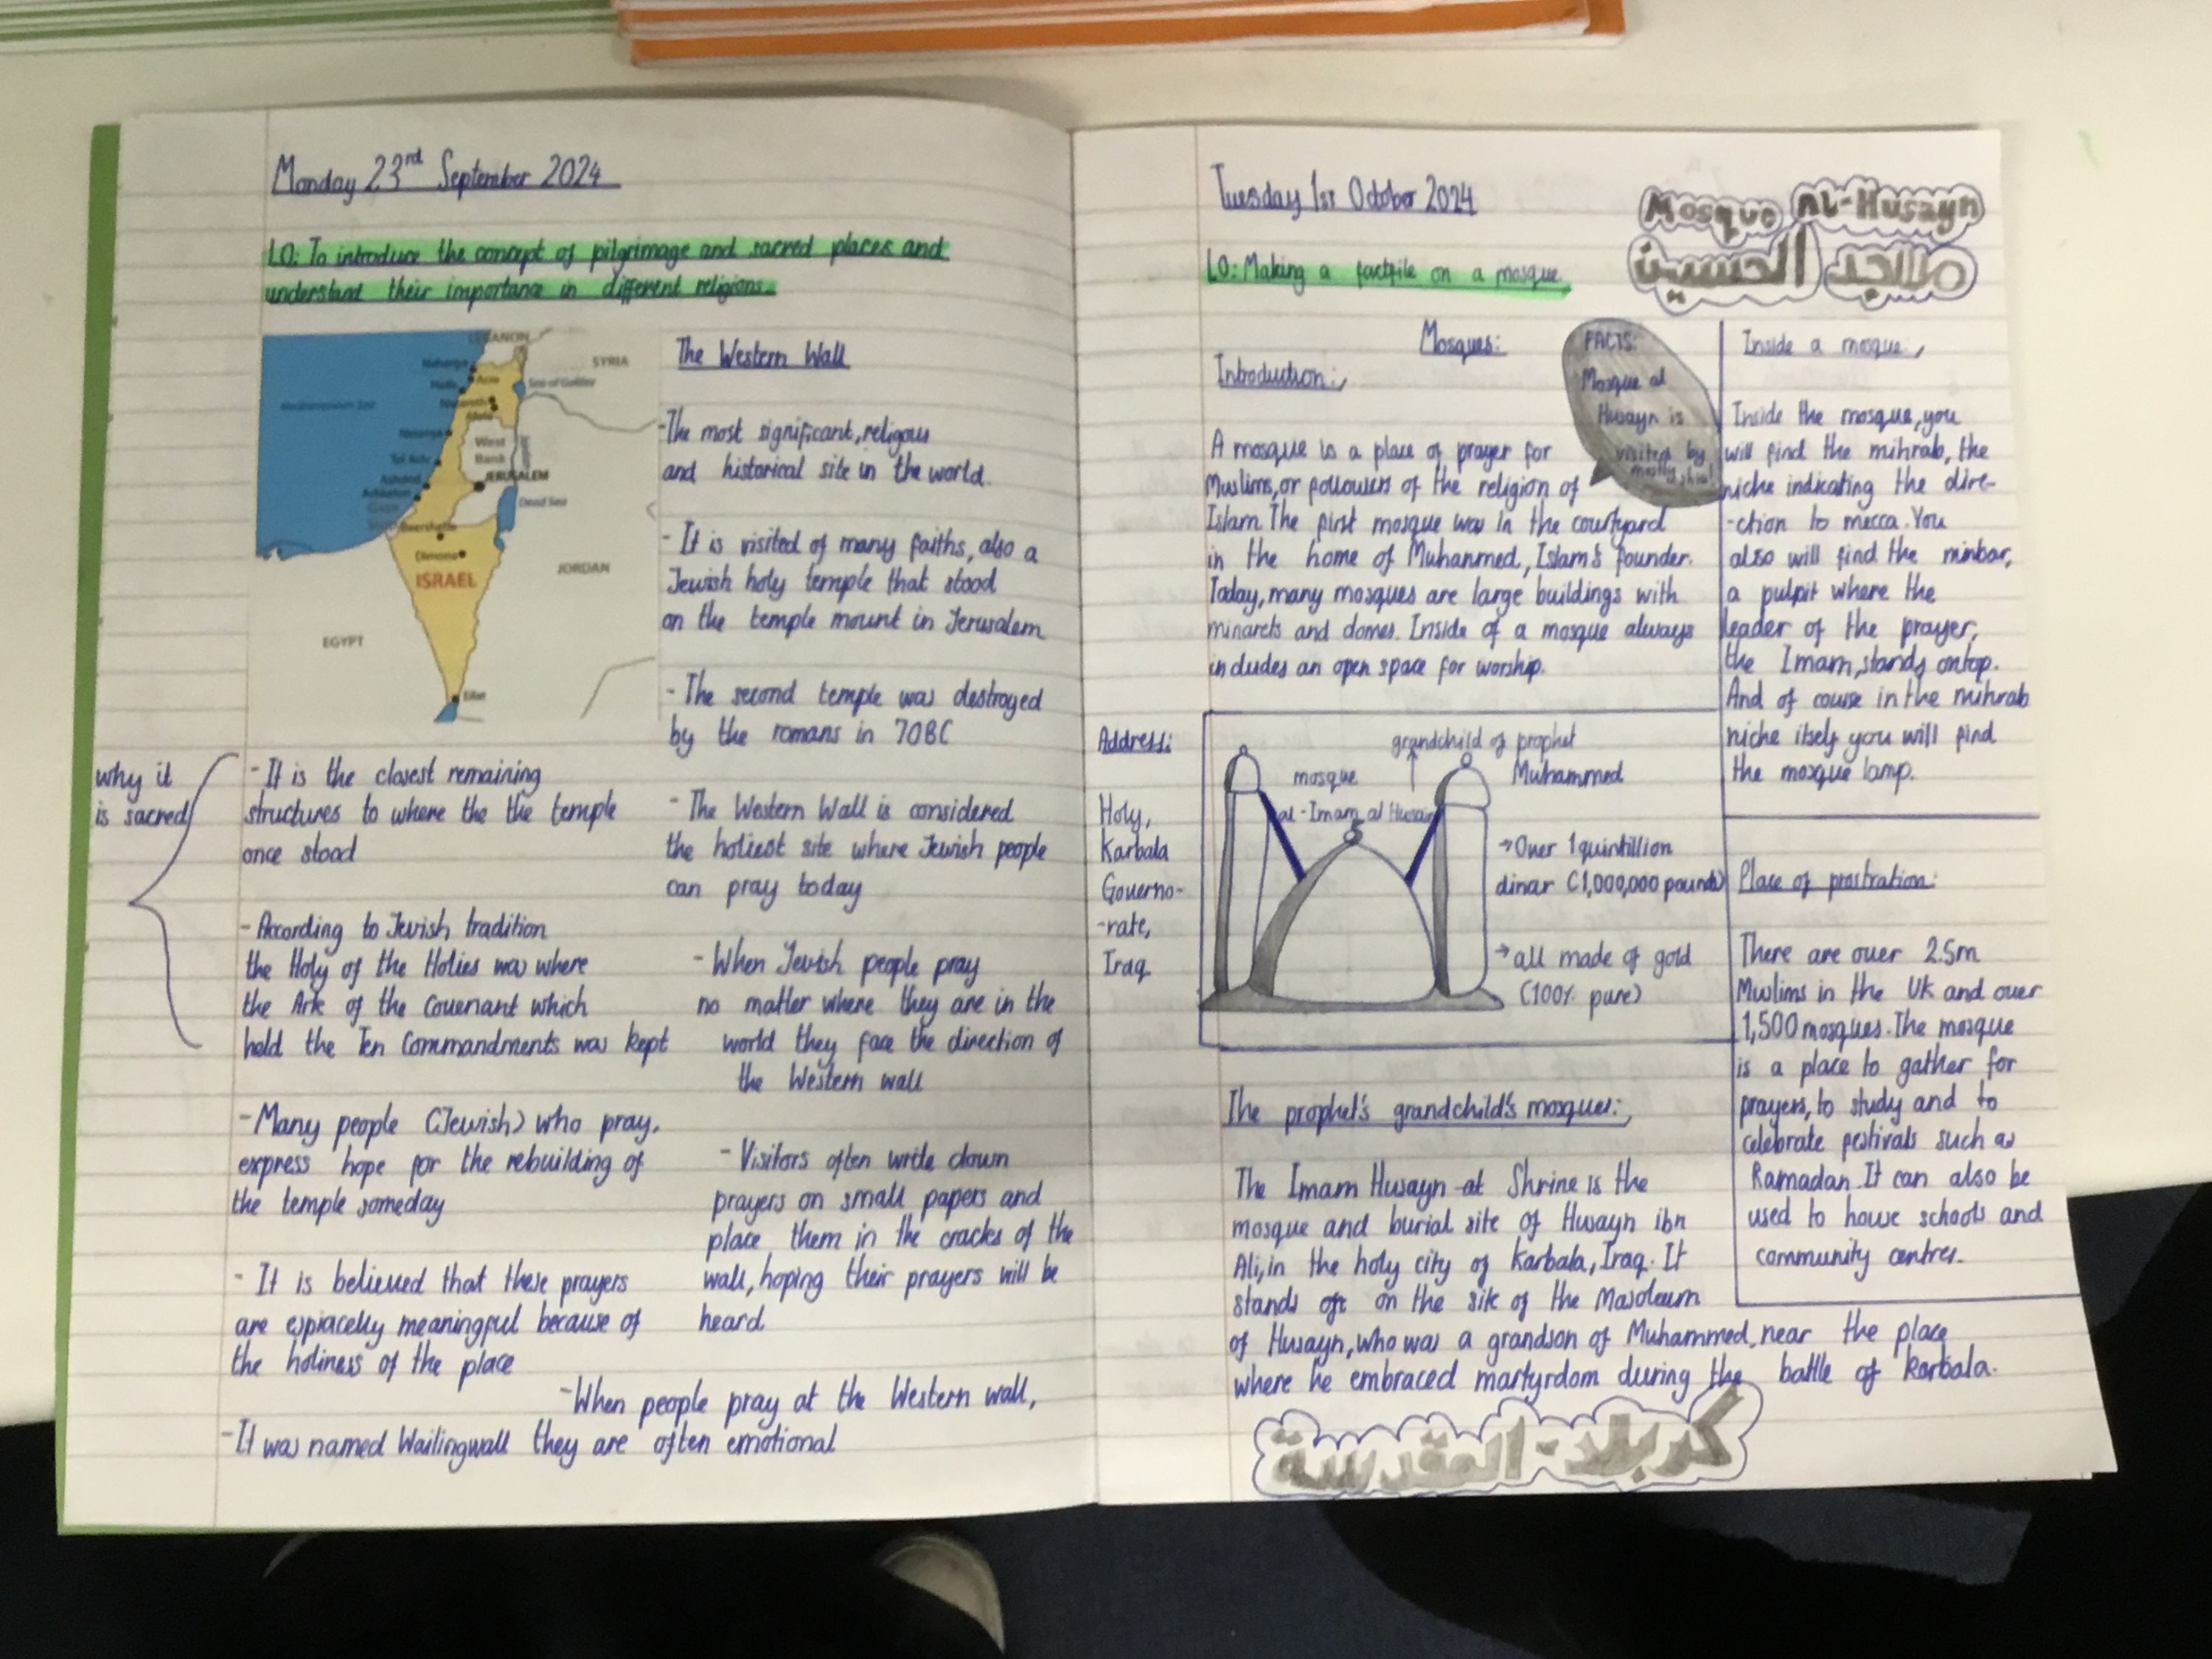 Monday 23rd September 2024
LO: To introduce the concept of pilgrimage and sacred places and
understand their importance in different religions.
LEBANON
SYRIA
Sea of Galilee
Mediterranean Sea
West
Bank
JERUSALEM
Dead Sea
Beersheba
Dimona
ISRAEL
JORDAN
EGYPT
Eilat
The Western Wall
-The most significant, religous
and historical site in the world.
- It is visited of many faiths, also a
Jewish holy temple that stood
on the temple mount in Jerusalem
- The second temple was destroyed
by the romans in 70BC
why it
is sacred
- It is the closest remaining
structures to where the the temple
once stood
- According to Jewish tradition
the Holy of the Holies was where
the Ark of the Covenant which
held the Ten Commandments was kept
- Many people (Jewish) who pray,
express hope for the rebuilding of
the temple someday
- It is believed that these prayers
are espiacelly meaningful because of
the holiness of the place
- It was named Wailingwall
- The Western Wall is considered
the holiest site where Jewish people
can pray today
- When Jewish people pray
no matter where they are in the
world they face the direction of
the Western wall
- Visitors often write down
prayers on small papers and
place them in the cracks of the
wall, hoping their prayers will be
heard
-When people pray at the Western wall,
they are often emotional
Tuesday 1st October 2024
LO: Making a factfile on a mosque.
Mosque Al-Husayn
الحسين
Mosques:
Introduction:
A mosque is a place of prayer for
Muslims, or followers of the religion of
Islam. The first mosque was in the courtyard
in the home of Muhanmed, Islam's founder.
Today, many mosques are large buildings with
minarets and domes. Inside of a mosque always
includes an open space for worship.
FACTS:
Mosque al
Husayn is
visited by
mostly shia!
Address:
Holy,
Karbala
Governo-
-rate,
Iraq
mosque
al-Imam al Husain
grandchild of prophet
Muhammed
→Over 1 quintillion
dinar (1,000,000 pounds)
→all made of gold
(100% pure)
The prophet's grandchild's mosque:
The Imam Husayn at Shrine is the
mosque and burial site of Husayn ibn
Ali, in the holy city of Karbala, Iraq. It
stands on the site of the Masoleum
of Husayn, who was a grandson of Muhammed, near the place
where he embraced martyrdom during the battle of karbala.
كربلاء المقدسة
Inside a mosque:
Inside the mosque, you
will find the mihrab, the
niche indicating the dire-
-ction to mecca. You
also will find the minbar,
a pulpit where the
leader of the prayer,
the Imam, stands ontop.
And of course in the mihrab
niche itself you will find
the mosque lamp.
Place of prostration:
There are over 2.5m
Muslims in the UK and over
1,500 mosques. The mosque
is a place to gather for
prayers, to study and to
celebrate festivals such as
Ramadan. It can also be
used to house schools and
community centres.